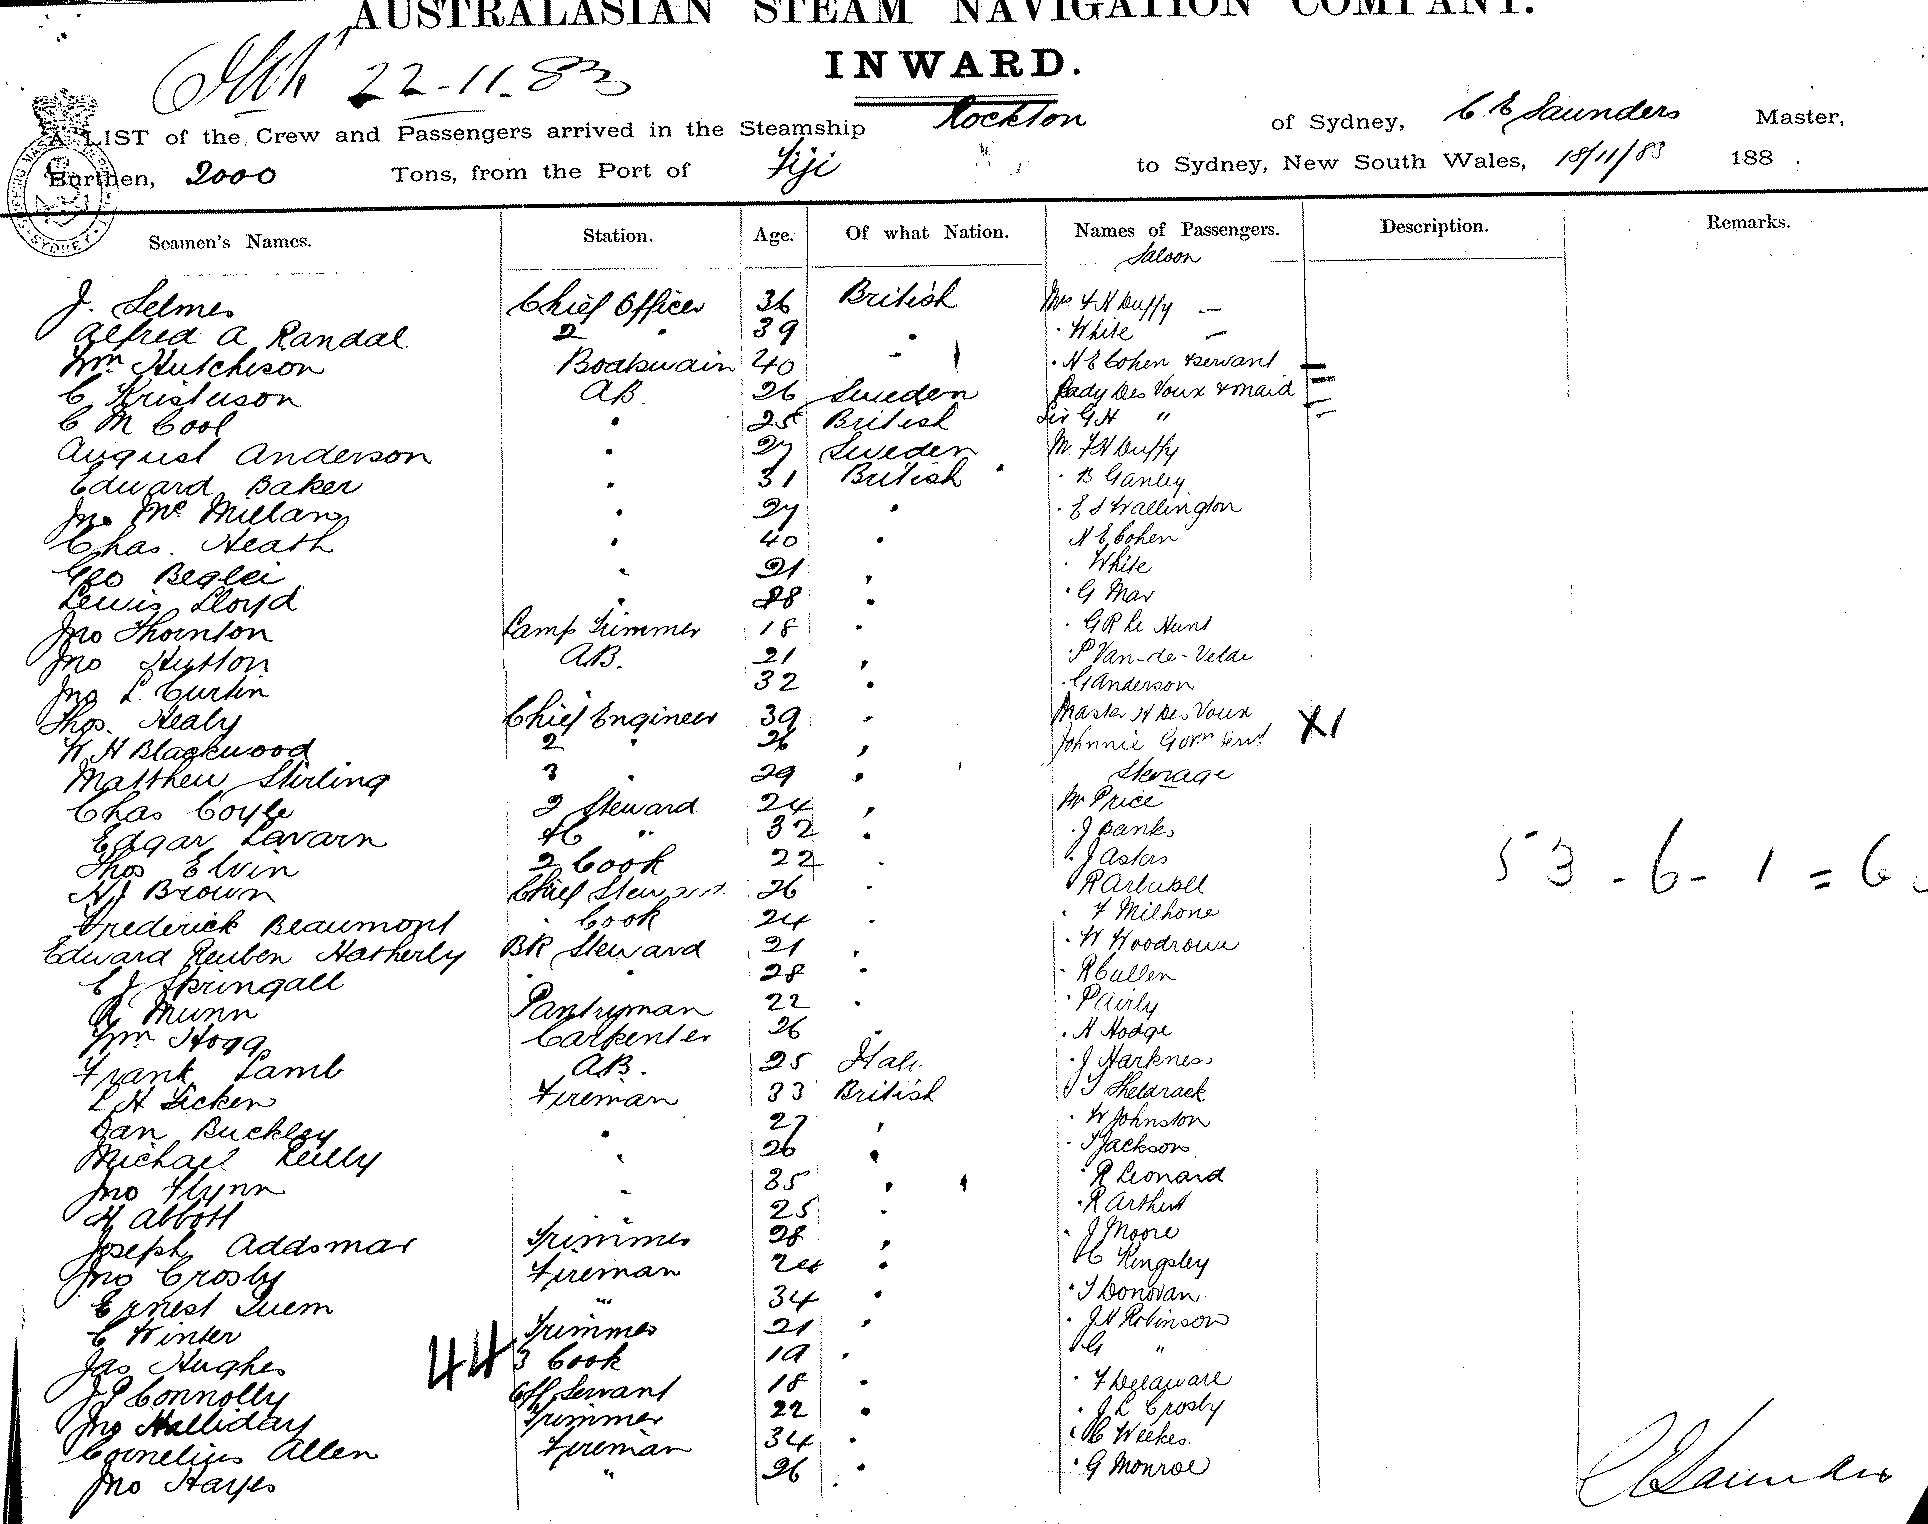 AUSTRALASIAN STEAM NAVIGATION COMPANY.
INWARD.
22-11-83
A LIST of the Crew and Passengers arrived in the Steamship Rockton of Sydney, C E Saunders Master,
Burthen, 2000 Tons, from the Port of Fiji to Sydney, New South Wales, 18/11/83 188 .
Seamen's Names. Station. Age. Of what Nation. Names of Passengers. Description. Remarks.
Saloon
J. Selmes Chief Officer 36 British Mrs F H Duffy —
Alfred A Randal 2 " 39 " " White —
Wm Hutchison Boatswain 40 " " H E Cohen & servant
C Kristuson AB. 26 Sweden Lady Des Voux & maid
C M Cool " 25 British Sir G H "
August Anderson " 27 Sweden Mr F H Duffy
Edward Baker " 31 British " B Ganley
Jno Mc Millan " 27 " " E S Wallington
Chas. Heath " 40 " H E Cohen
Geo Beglei " 21 " " White
Lewis Lloyd " 28 " " G Mar
Jno Thornton Lamp Trimmer 18 " " G R Le Hunt
Jno Hutton AB. 21 " " P Van-de-Velde
Jno L. Curtin " 32 " " G Anderson
Thos. Healy Chief Engineer 39 " Master H Des Voux
W H Blackwood 2 " 26 " Johnnie Govn Servt X1
Matthew Stirling 3 " 29 " Steerage
Chas Coyle 2 Steward 24 " Mr Price
Edgar Lavarn " 32 " " J Banks
Thos Elvin 2 Cook 22 " " J Asters
H J Brown Chief Steward 26 " " R
Frederick Beaumont " Cook 24 " " F Milhone
Edward Reuben Hatherly BR Steward 21 " " W Woodrow
C J Springall " " 28 " " R Cullen
R Munn Pantryman 22 " " P Airly
Wm Hogg Carpenter 26 " " H Hodge
Frank Lamb AB. 25 Italy " J Harkness
L H Licken Fireman 33 British " T Sheldrack
Dan Buckley " 27 " " W Johnston
Michael Reilly " 26 " " Jackson
Jno Flynn " 35 " " R Leonard
H Abbott " 25 " " R Arthur
Joseph Addsmar Trimmer 28 " " J Moore
Jno Crosby Fireman 24 " " C Kingsley
Ernest Quem " 34 " " T Donovan
C Winter Trimmer 21 " " J H Robinson
Jas Hughes 3 Cook 19 " " G "
J P Connolly Off Servant 18 " " F Delaware
Jno Halliday Trimmer 22 " " J L Crosby
Cornelius Allen Fireman 34 " " C Weekes
Jno Hayes " 26 " " G Monroe
44
53 - 6 - 1 = 6
C E Saunders